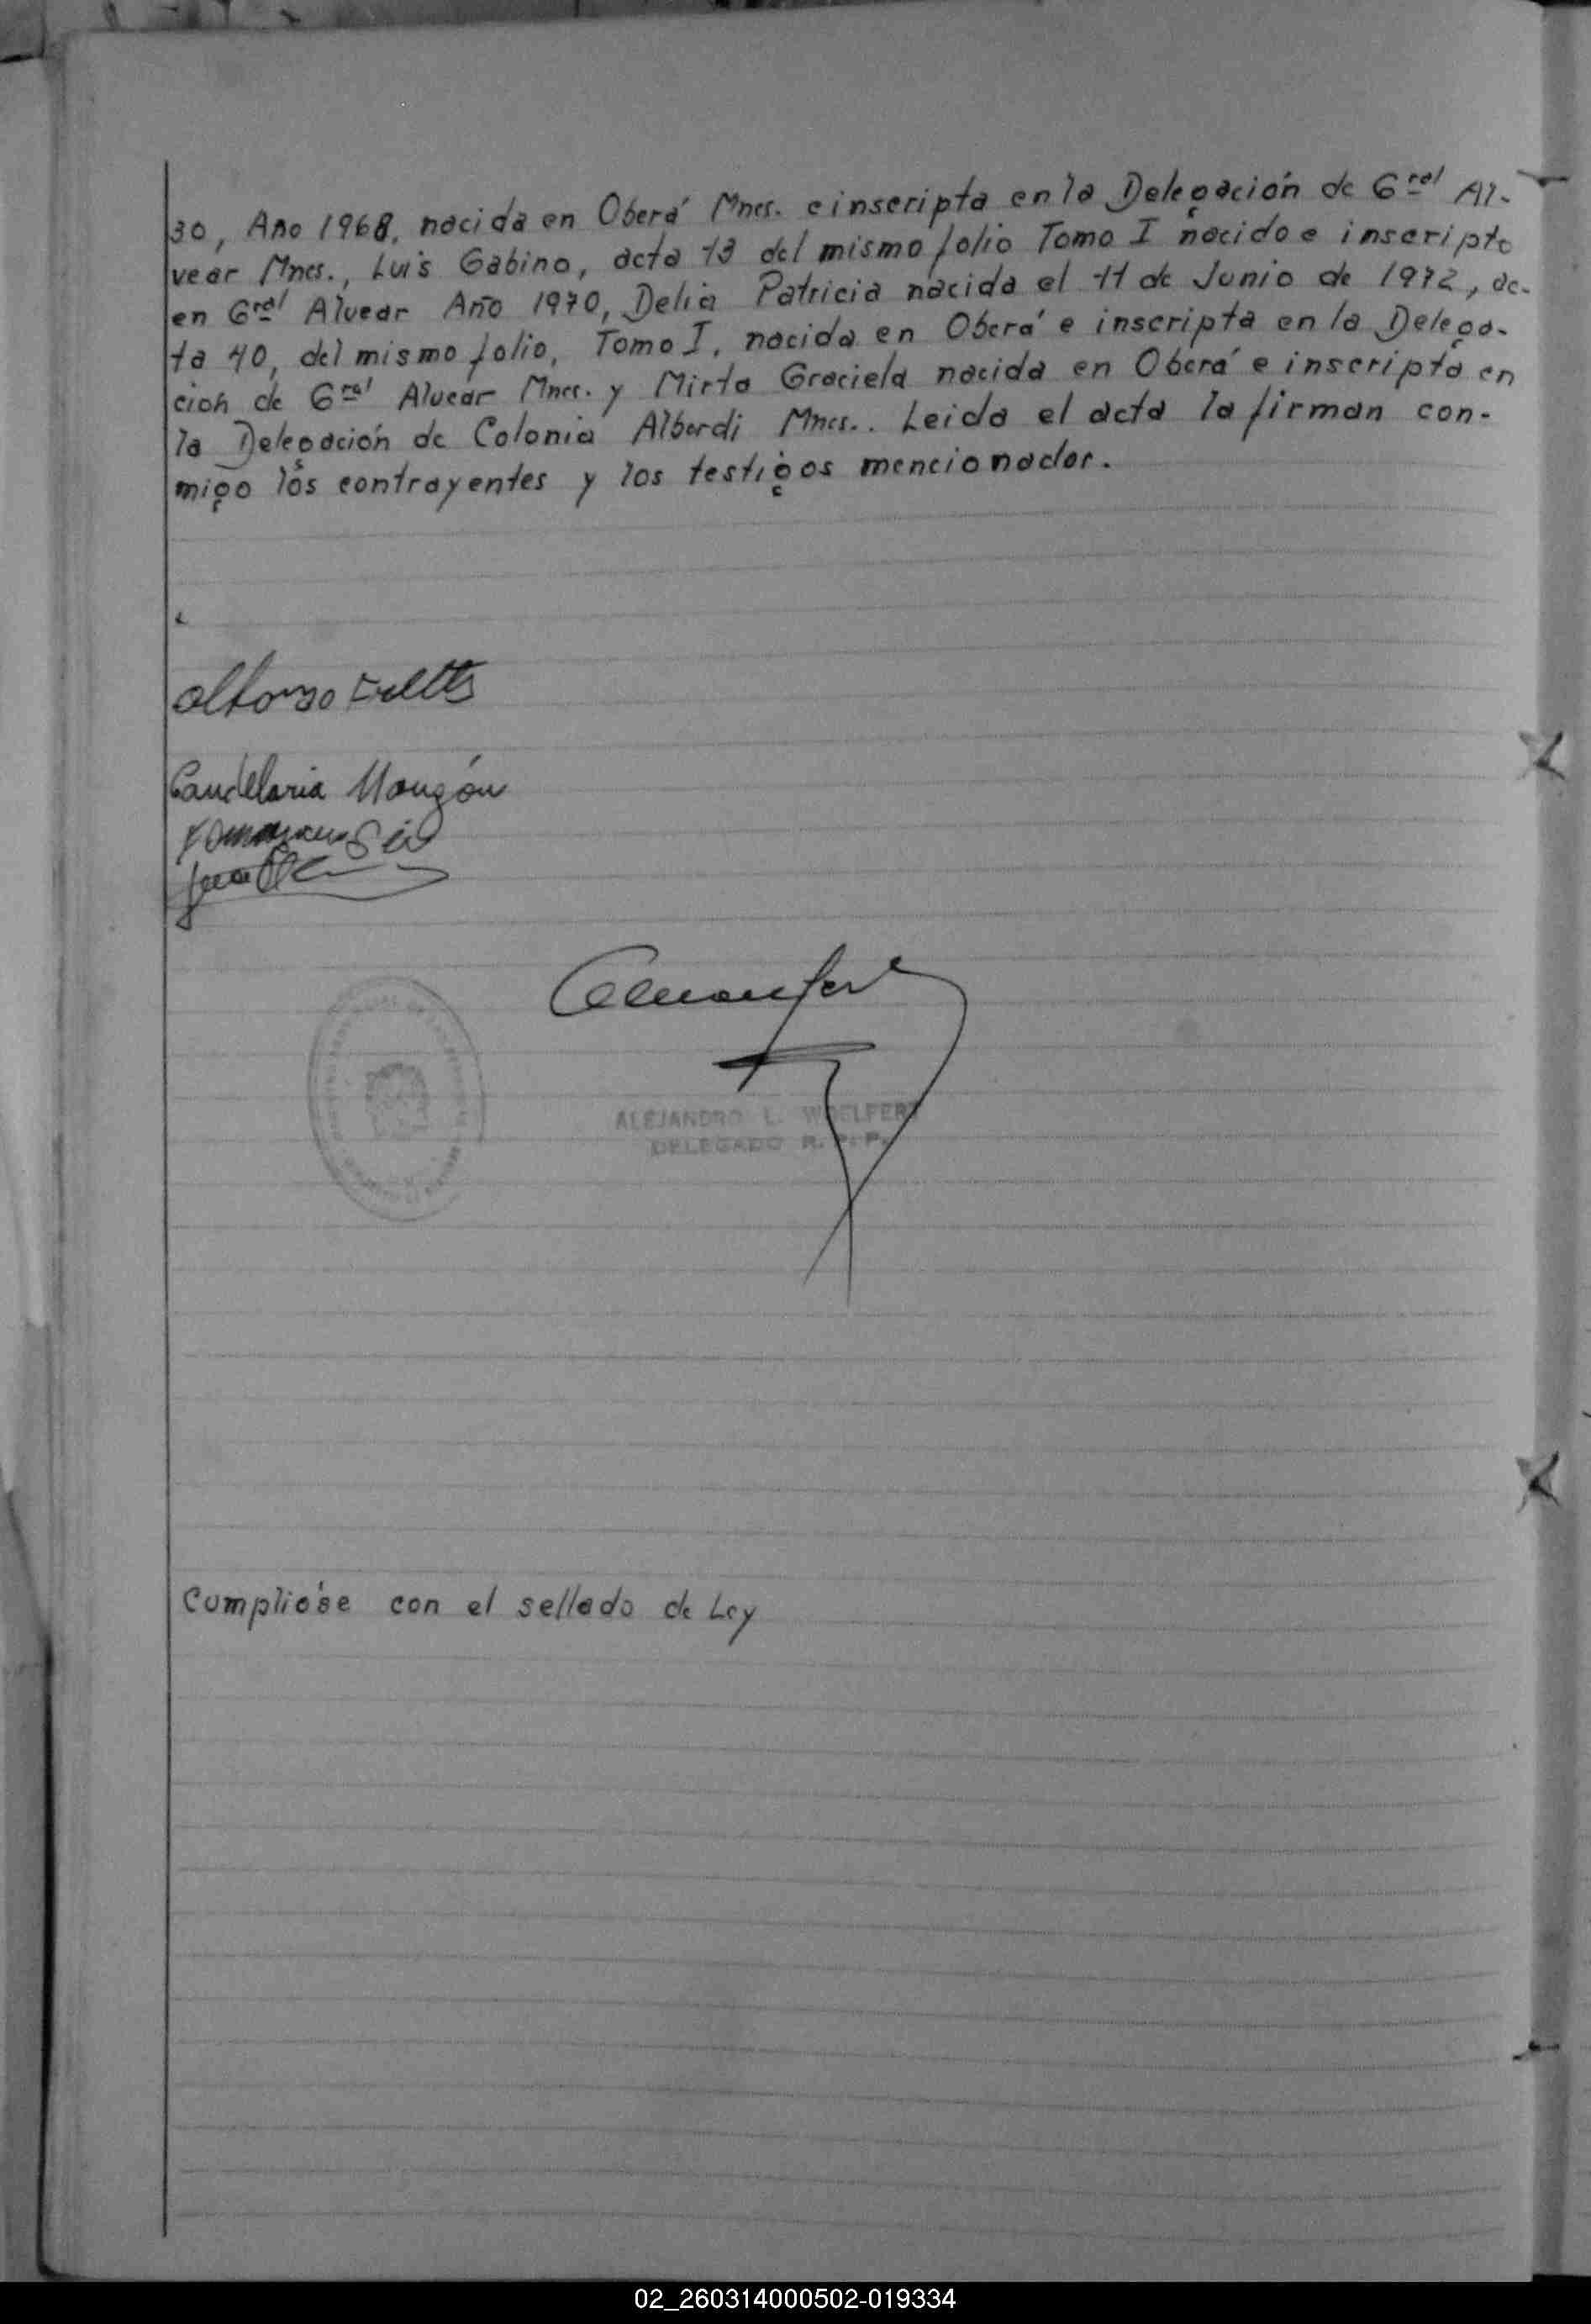 30, Año 1968, nacida en Oberá Mnes. e inscripta en la Delegación de Gral Al-
vear Mnes., Luis Gabino, acta 13 del mismo folio Tomo I nacido e inscripto
en Gral Alvear Año 1970, Delia Patricia nacida el 11 de Junio de 1972, ac-
ta 40, del mismo folio, Tomo I, nacida en Oberá e inscripta en la Delega-
ción de Gral Alvear Mnes. y Mirta Graciela nacida en Oberá e inscripta en
la Delegación de Colonia Alberdi Mnes.. Leida el acta la firman con-
migo los contrayentes y los testigos mencionados.
Candelaria Monzón
ALEJANDRO L. WOELFERT
DELEGADO R. P. P.
Cumplióse con el sellado de Ley
02_260314000502-019334